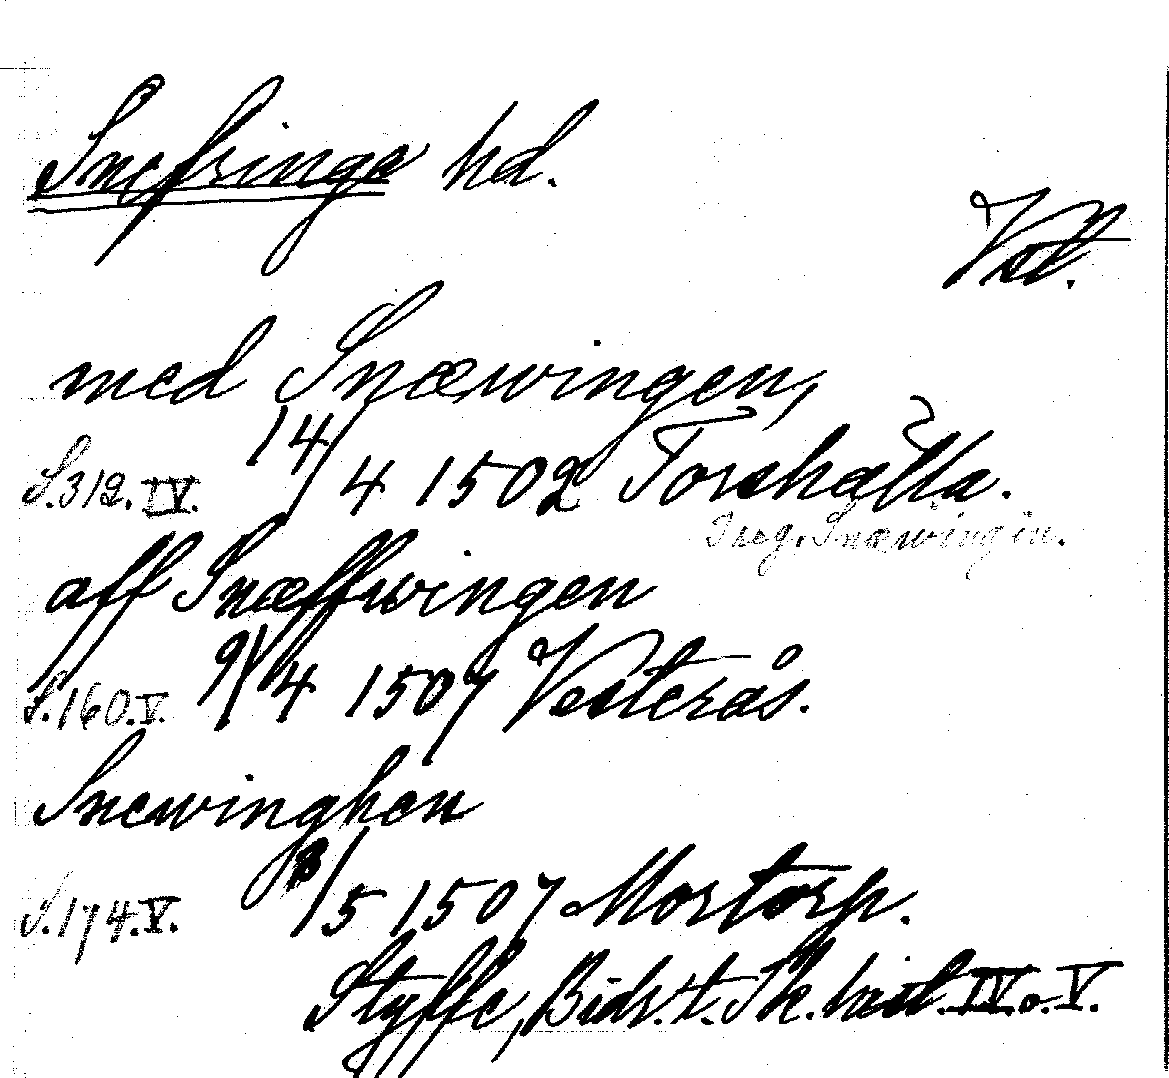 Snefringe hd.
Vstl.
med Snæwingen,
S.312.IV. 14/4 1502 Torshälla.
Ireg. Snæwingin.
aff Snæffwingen
S.160.V. 9/4 1507 Vesterås.
Snewinghen
S.174.V. 8/5 1507 Mostorp.
Styffe, Bidr. t. Sk. hist. IV. o. V.